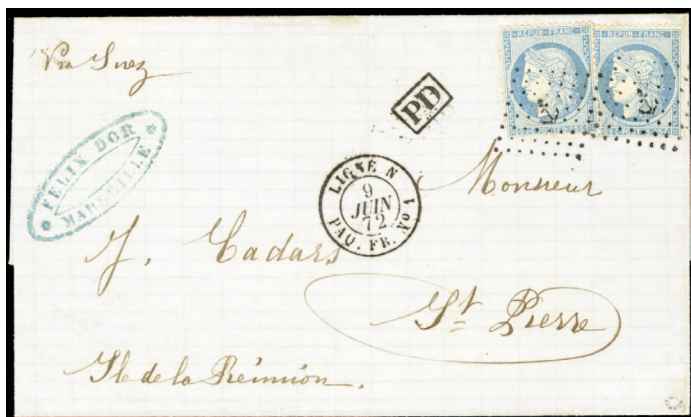 REPUB · FRANC ·
REPUB · FRANC ·
Via Suez
PD
* FELIX DOR *
MARSEILLE
LIGNE N
9
JUIN
72
PAQ. FR. No 1
Monsieur
J. Cadars
St Pierre
Ile de la Réunion.